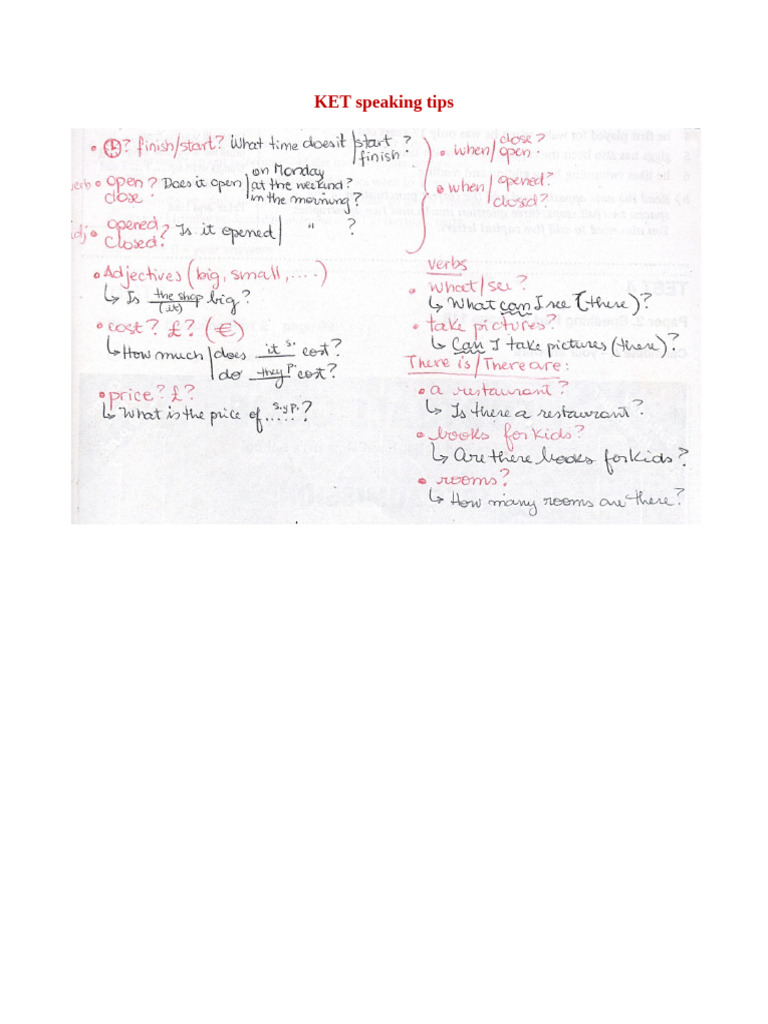 KET speaking tips
• ? finish/start? What time does it | start ?
finish
verb • open ? Does it open | on Monday
close | at the weekend?
in the morning?
adj • opened ? Is it opened | " ?
closed?
• when | close?
open.
• when | opened?
closed?
• Adjectives (big, small, ....)
↳ Is the shop big?
(it)
• cost? £? (€)
↳ How much | does it s. cost?
do they p. cost?
• price? £?
↳ What is the price of ..... s. y p. ?
verbs
• what/see?
↳ What can I see (there)?
• take pictures?
↳ Can I take pictures (there)?
There is/There are:
• a restaurant?
↳ Is there a restaurant?
• books for kids?
↳ Are there books for kids?
• rooms?
↳ How many rooms are there?